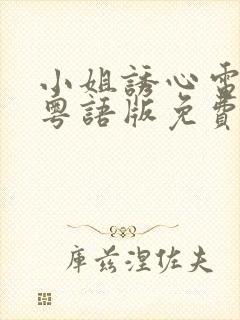 小姐誘心電
粵語版免費
庫茲涅佐夫